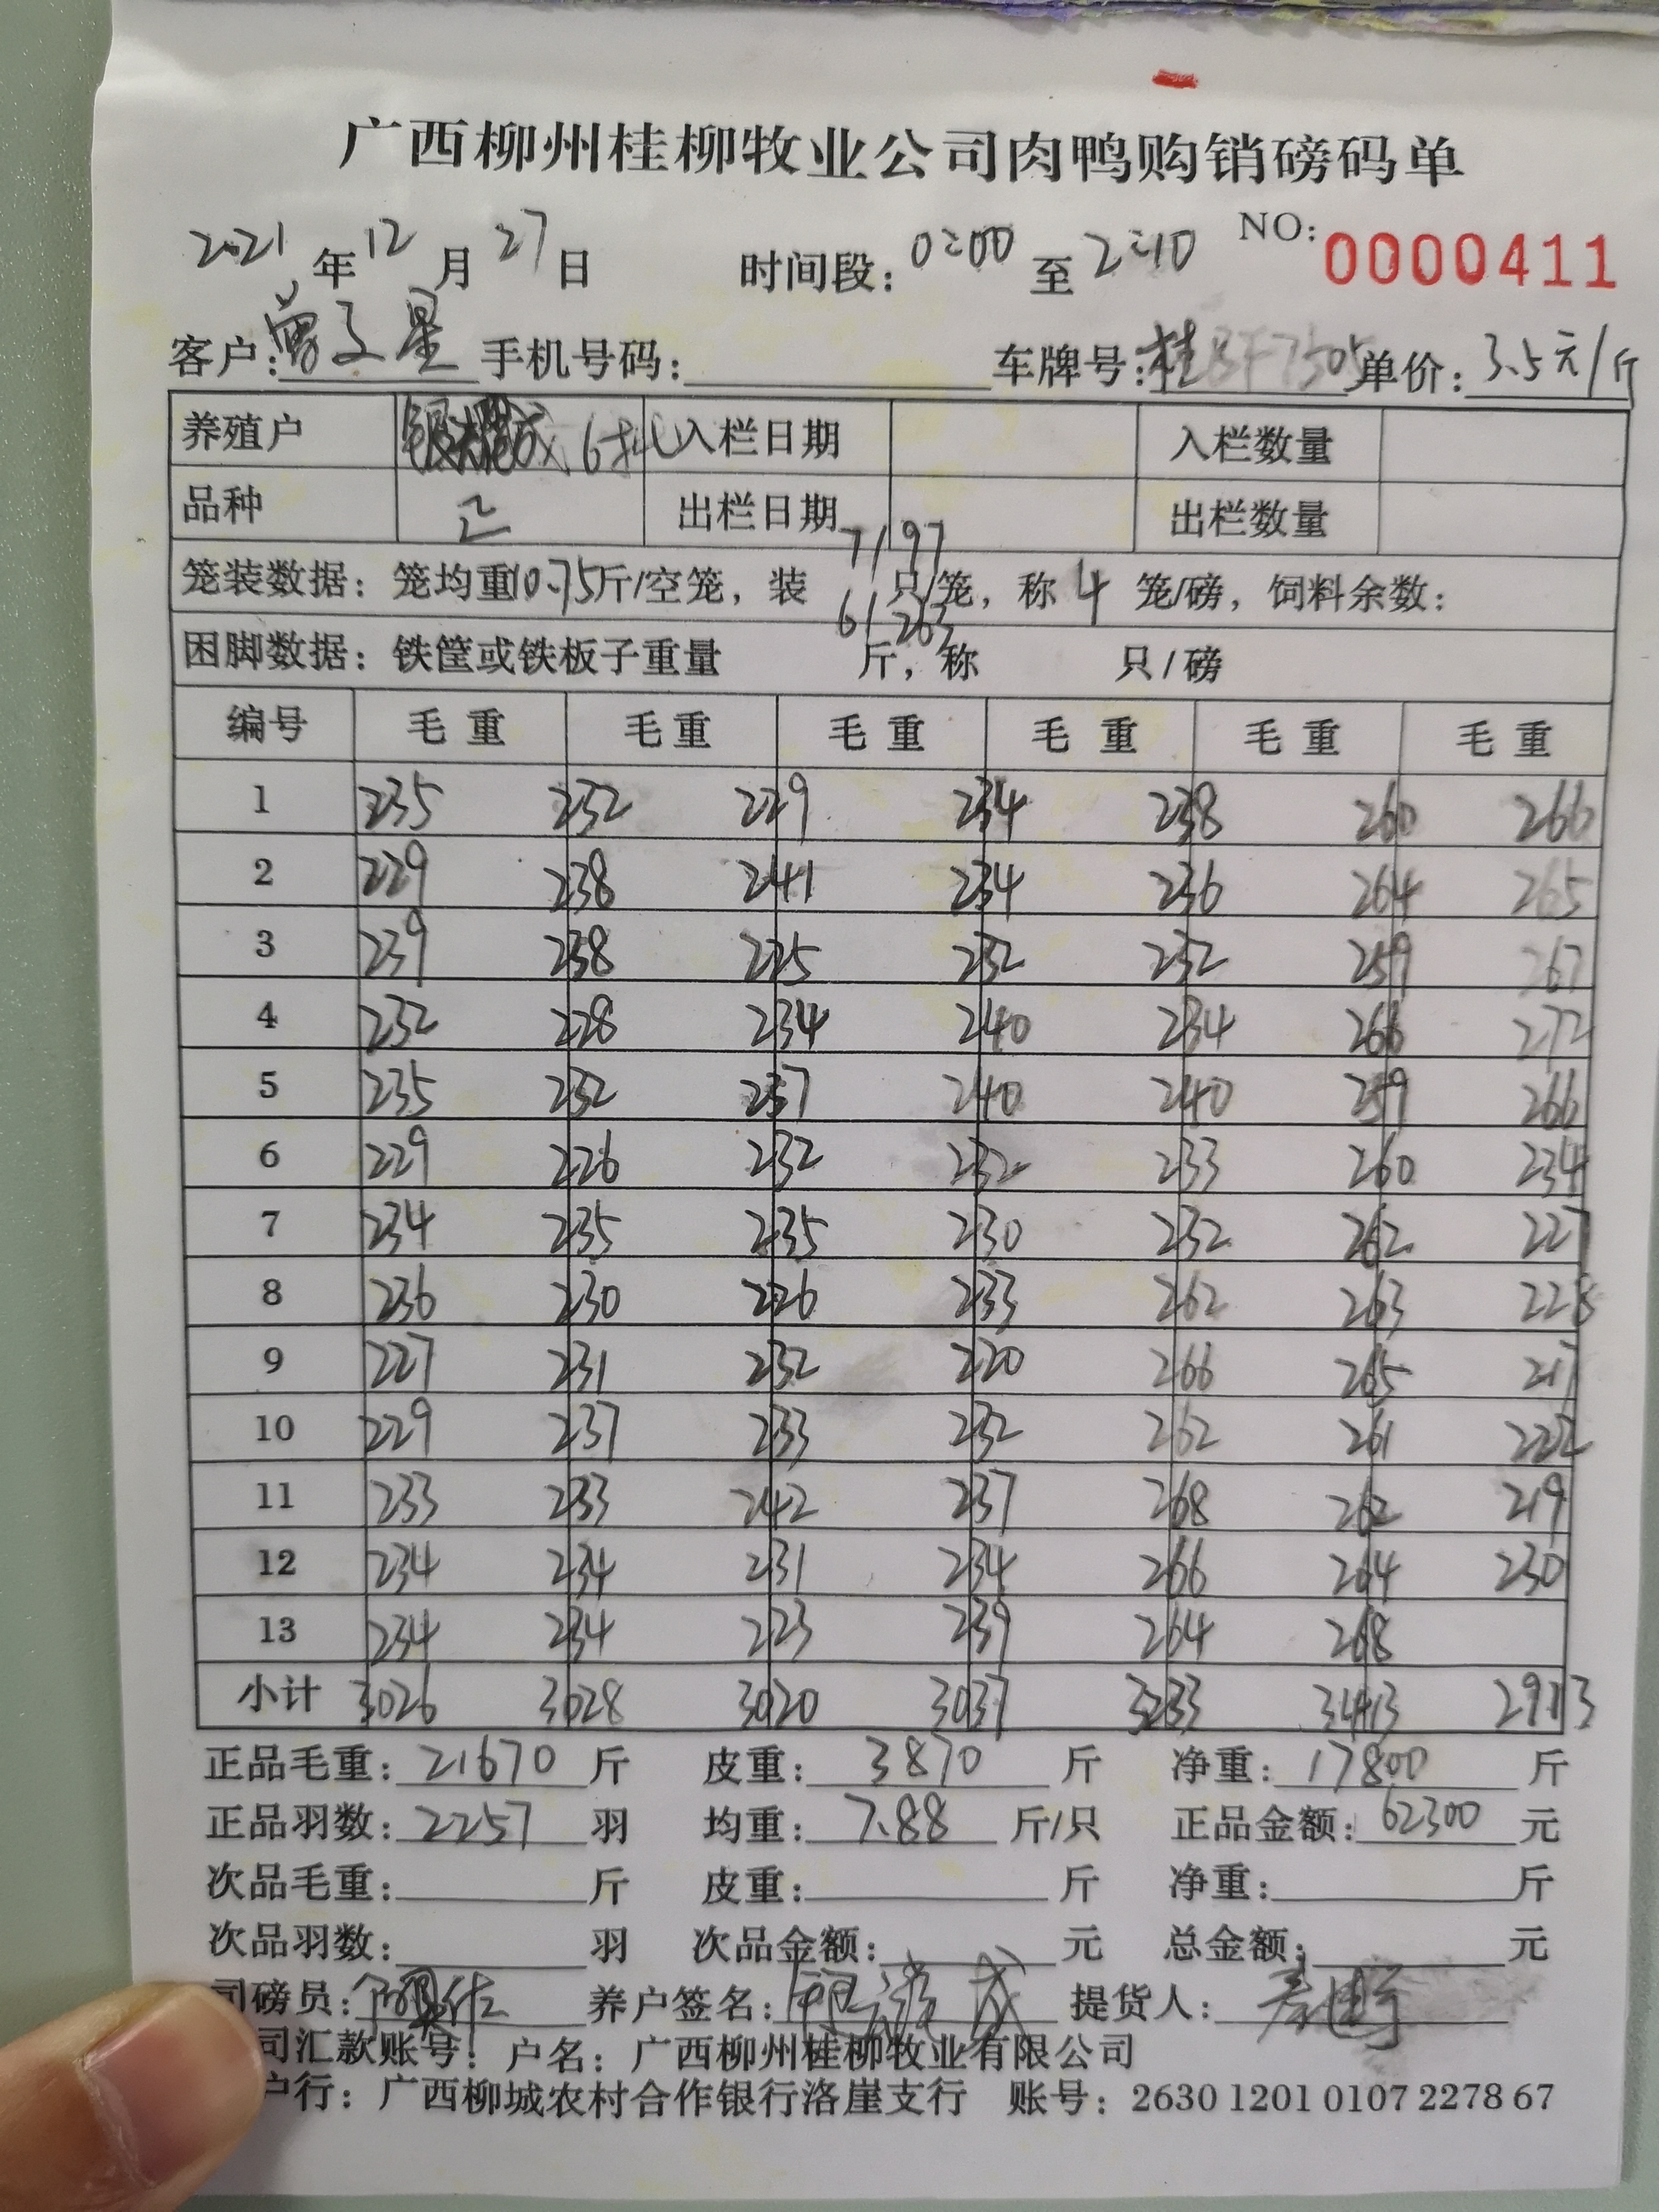 广西柳州桂柳牧业公司肉鸭购销磅码单
2021年12月27日 时间段：0:00至2:10 NO：0000411
客户：曾文星 手机号码： 车牌号：桂BF7505 单价：3.5元/斤
养殖户 6批 入栏日期 入栏数量
品种 出栏日期 出栏数量
7/97
笼装数据：笼均重10.75斤/空笼，装 只/笼，称4笼/磅，饲料余数：
6/263
困脚数据：铁筐或铁板子重量 斤，称 只/磅
编号 毛重 毛重 毛重 毛重 毛重 毛重
1 235 232 229 234 238 260 266
2 229 238 241 234 236 264 265
3 239 238 225 232 232 259 267
4 232 228 234 240 234 266 272
5 235 232 237 240 240 259 266
6 229 226 232 232 233 260 234
7 234 235 235 230 232 262 227
8 236 230 226 233 262 263 228
9 227 231 232 220 266 265 217
10 229 237 233 232 262 261 222
11 233 233 242 237 268 262 219
12 234 234 231 234 266 264 230
13 234 234 223 239 264 268
小计 3026 3028 3020 3037 3233 3413 2913
正品毛重：21670斤 皮重：3870斤 净重：17800斤
正品羽数：2257羽 均重：7.88斤/只 正品金额：62300元
次品毛重： 斤 皮重： 斤 净重： 斤
次品羽数： 羽 次品金额： 元 总金额： 元
司磅员： 养户签名： 提货人：
司汇款账号：户名：广西柳州桂柳牧业有限公司
户行：广西柳城农村合作银行洛崖支行 账号：2630 1201 0107 2278 67